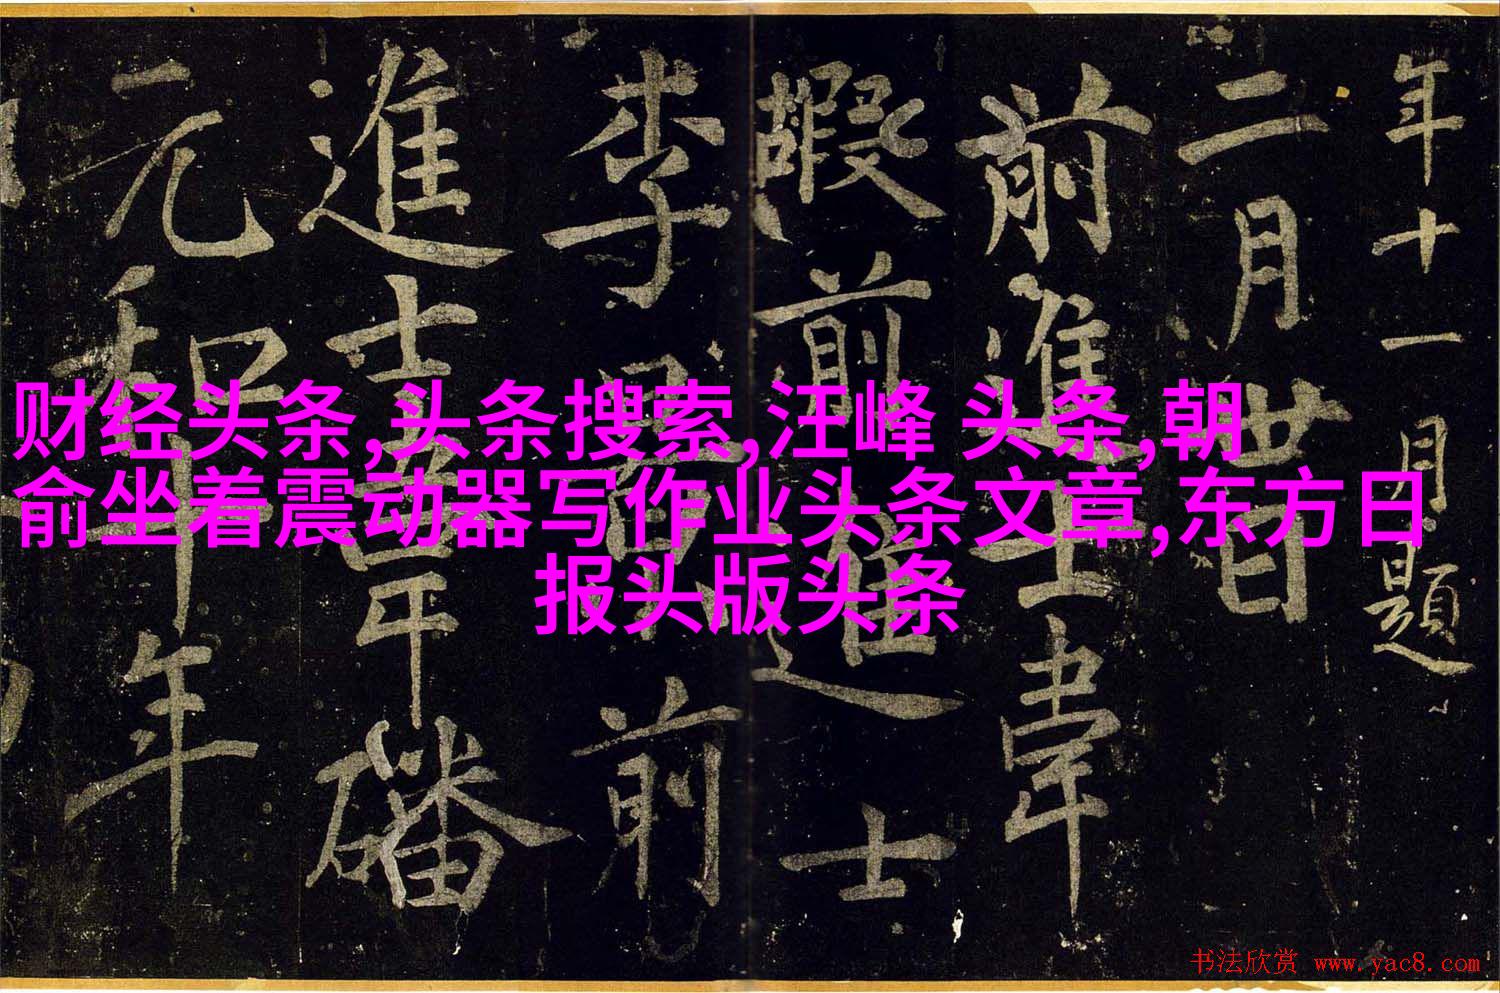 财经头条,头条搜索,汪峰 头条,朝
俞坐着震动器写作业头条文章,东方日
报头版头条
年十一月題
二月廿日
前進士韋
前進士
李前
進士平磻
元和十年
书法欣赏 www.yac8.com